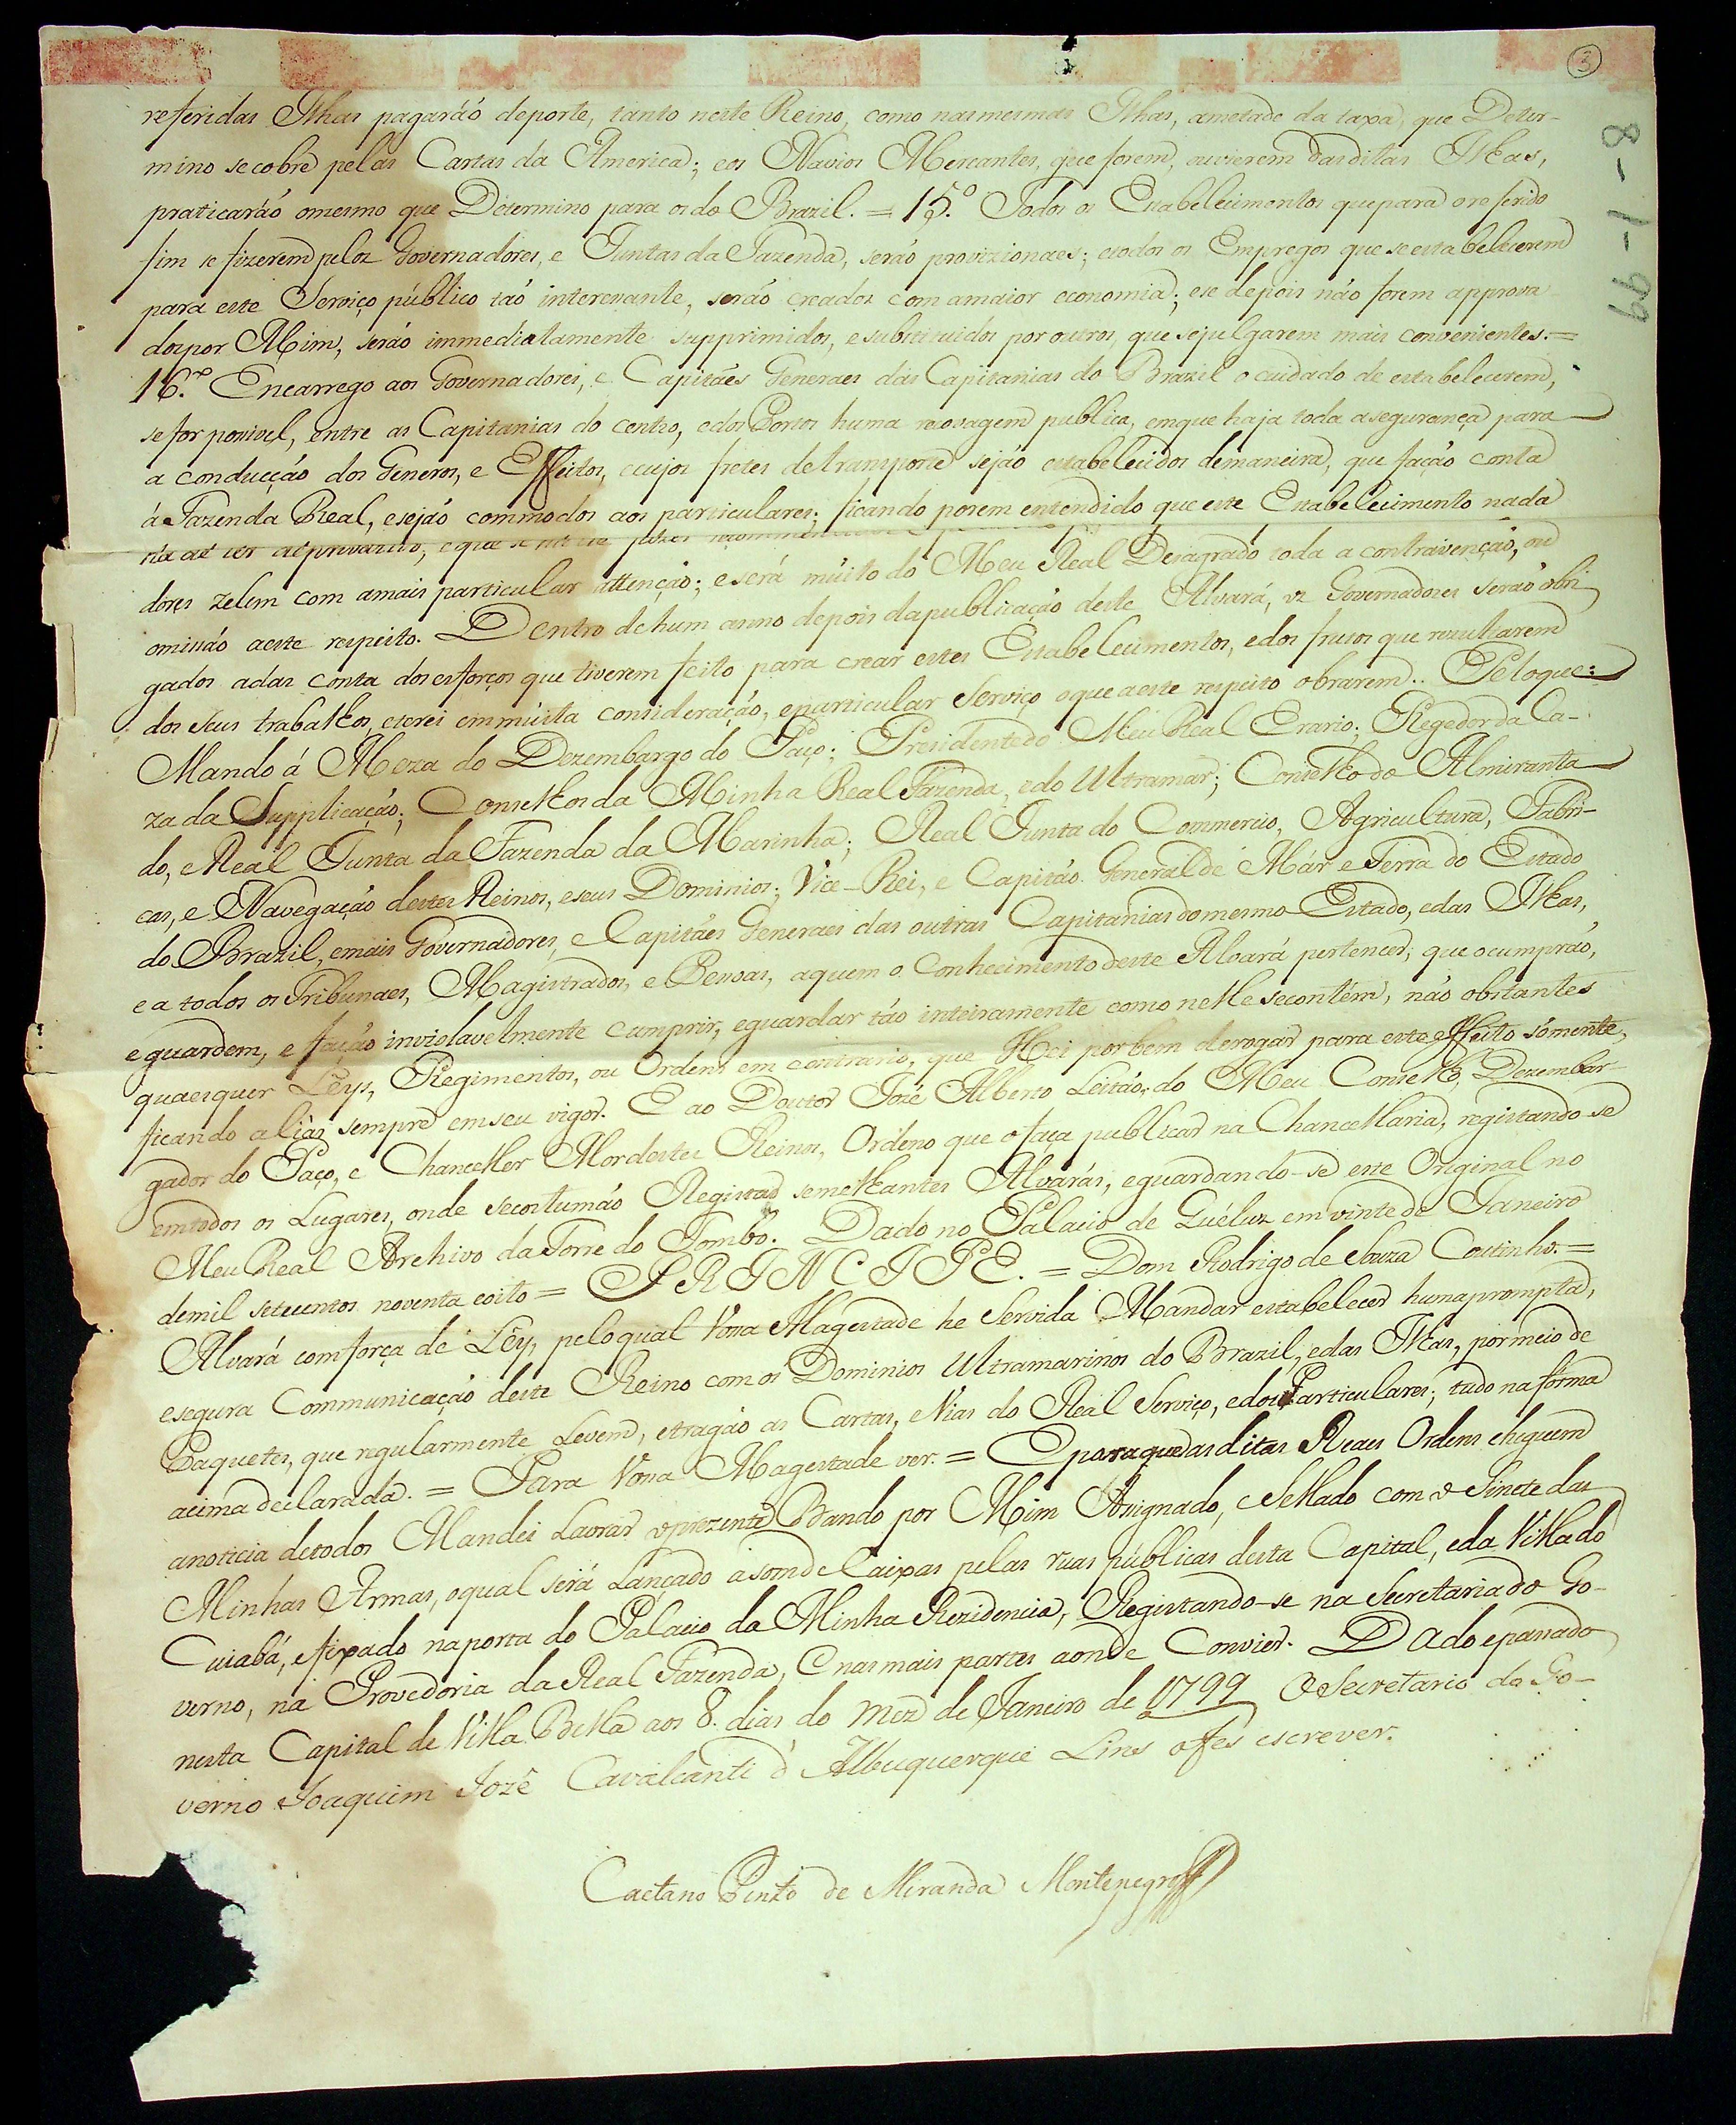 3
8-1-99
referidas Ilhas pagaráõ deporte, tanto neste Reino, como nasmesmas Ilhas, ametade da taxa, que Deter-
mino secobre pelas Cartas da America; eos Navios Mercantes, que forem, ouvierem dasditas Ilhas,
praticaráõ omesmo que Determino para osdo Brazil. = 15.º Todos os Estabelecimentos quepara oreferido
fim se fizerem pelos Governadores, e Juntas da Fazenda, seráõ provizionaes; etodos os Empregos que seestabelecerem
para este Serviço público táõ interessante, seráõ creados com amaior economia; ese depois náõ forem approva
dospor Mim, seráõ immediatamente supprimidos, esubstituidos por outros, que sejulgarem mais convenientes. =
16.º Encarrego aos Governadores, e Capitáes Generaes das Capitanias do Brazil o cuidado de estabelecerem,
se for possivel, entre as Capitanias do centro, edos Portos huma recovagem publica, emque haja toda asegurança para
a conducçáõ dos Generos, e Effeitos, ecujos fretes detransporte sejáõ estabelecidos demaneira, que façáõ conta
á Fazenda Real, esejáõ commodos aos particulares; ficando porem entendido que este Estabelecimento nada
ha de ter deprivativo, eque se
dores zelem com amais particular attençáõ; eserá múito do Meu Real Desagrado toda a contravençáõ, ou
omissáõ aeste respeito. Dentro dehum anno depois dapublicaçáõ deste Alvará, os Governadores seráõ obri
gados adar conta dosesforços que tiverem feito para crear estes Estabelecimentos, edos frutos que rezultarem
dos seus trabalhos, eterei emmúita consideraçáõ, eparticular Serviço oque aeste respeito obrarem.. Peloque:
Mando á Meza do Dezembargo do Paço; Presidentedo Meu Real Erario; Regedor da Ca-
za da Supplicaçáõ; Conselhos da Minha Real Fazenda, edo Ultramar; Conselho do Almiranta
do, e Real Junta da Fazenda da Marinha; Real Junta do Commercio, Agricultura, Fabri-
cas, e Navegaçáõ destes Reinos, eseus Dominios; Vice-Rei, e Capitáõ General de Már e Terra do Estado
do Brazil, emais Governadores, e Capitáes Generaes das outras Capitaniasdomesmo Estado, edas Ilhas,
e a todos os Tribunaes, Magistrados, e Pessoas, aquem o Conhecimento deste Alvará pertencer, que ocumpráõ,
eguardem, e façáõ inviolavelmente cumprir, eguardar táõ inteiramente como nelle secontém, náõ obstantes
quaesquer Leys, Regimentos, ou Ordens em contrario, que Hei porbem derogar para este effeito sómente,
ficando aliás sempre emseu vigor. E ao Doutor José Alberto Leitáõ, do Meu Conselho, Dezembar-
gador do Paço, e Chanceller Mordestes Reinos, Ordeno que ofaça publicar na Chancellaria, registando-se
emtodos os Lugares, onde secostumáõ Registar semelhantes Alvarás, eguardando-se este Original no
Meu Real Archivo da Torre do Tombo. Dado no Palacio de Quéluz emvinte de Janeiro
demil setecentos noventa eoito = PRINCIPE. = Dom Rodrigo de Souza Coutinho. =
Alvará comforça de Ley, peloqual Vossa Magestade he Servida Mandar estabelecer humaprompta,
esegura Communicaçáõ deste Reino comos Dominios Ultramarinos do Brazil, edas Ilhas, pormeio de
Paquetes, que regularmente Levem, etragáõ as Cartas, e Vias do Real Serviço, edos Particulares; tudo na fórma
acima declarada. = Para Vossa Magestade ver. = E paraque as ditas Reaes Ordens cheguem
anoticia detodos Mandei Lavrar oprezente Bando por Mim Assignado, e Sellado com o Sinete das
Minhas Armas, oqual será Lançado asomde Caixas pelas ruas públicas desta Capital, eda Villa do
Cuiabá, efixado naporta do Palacio da Minha Rezidencia, Registando-se na Secretaria do Go-
verno, na Provedoria da Real Fazenda, e nas mais partes aonde Convier. Dado epassado
nesta Capital de Villa Bella aos 8. dias do Mez de Janeiro de 1799 O Secretario do Go-
verno Joaquim Jozé Cavalcante d'Albuquerque Lins ofes escrever.
Caetano Pinto de Miranda Montenegro